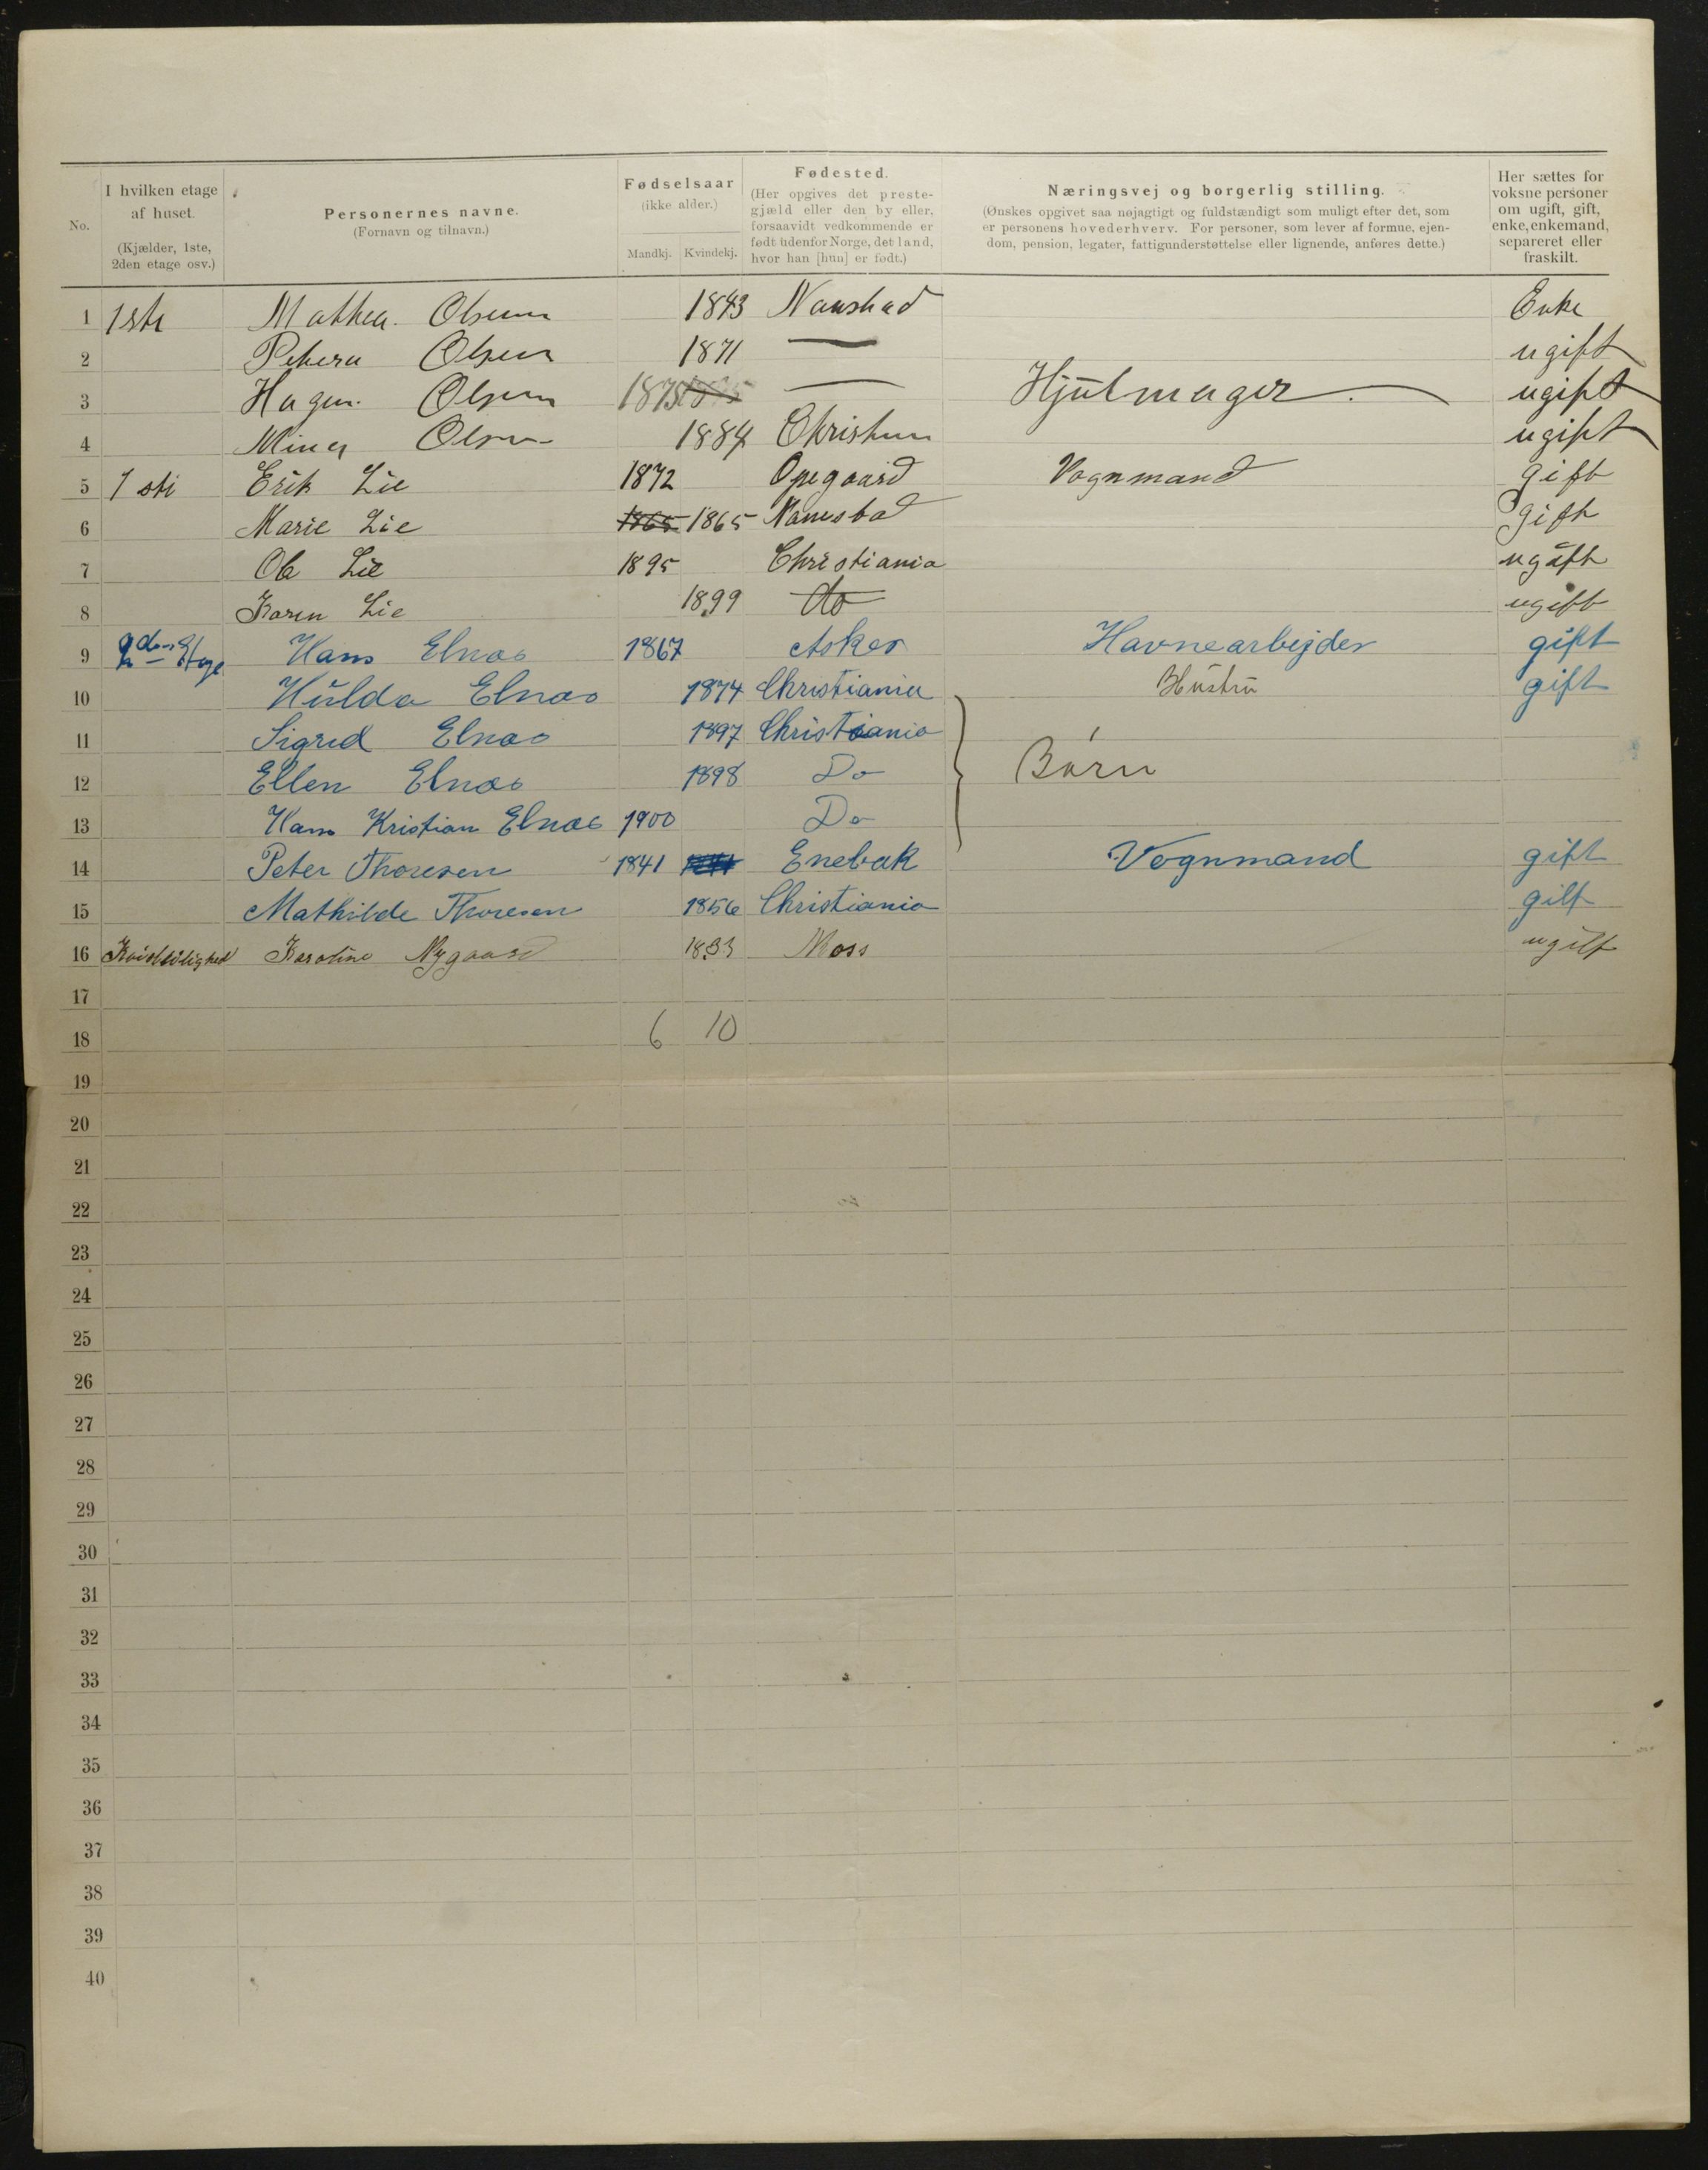 No. I hvilken etage af huset. (Kjælder, 1ste, 2den etage osv.) Personernes navne. (Fornavn og tilnavn.) Fødselsaar (ikke alder.) Mandkj. Kvindekj. Fødested. (Her opgives det prestegjæld eller den by eller, forsaavidt vedkommende er født udenfor Norge, det land, hvor han [hun] er født.) Næringsvej og borgerlig stilling. (Ønskes opgivet saa nøjagtigt og fuldstændigt som muligt efter det, som er personens hovederhverv. For personer, som lever af formue, ejendom, pension, legater, fattigunderstøttelse eller lignende, anføres dette.) Her sættes for voksne personer om ugift, gift, enke, enkemand, separeret eller fraskilt.
1 1ste Mathea Olsen 1843 Nanestad Enke
2 Petera Olsen 1871 — ugift
3 Hagen Olsen 1875 — Hjulmager ugift
4 Mina Olsen 1884 Christian ugift
5 1ste Erik Lie 1872 Opegaard Vognmand gift
6 Marie Lie 1865 1865 Nanestad gift
7 Ole Lie 1895 Christiania ugift
8 Karen Lie 1899 do ugift
9 2den Etage Hans Elnæs 1867 Asker Havnearbejder gift
10 Hulda Elnæs 1874 Christiania Hustru gift
11 Sigrid Elnæs 1897 Christiania
12 Ellen Elnæs 1898 Do Børn
13 Hans Kristian Elnæs 1900 Do
14 Peter Thoresen 1841 Enebak Vognmand gift
15 Mathilde Thoresen 1856 Christiania gift
16 Karoline Nygaard 1833 Moss ugift
17
18 6 10
19
20
21
22
23
24
25
26
27
28
29
30
31
32
33
34
35
36
37
38
39
40